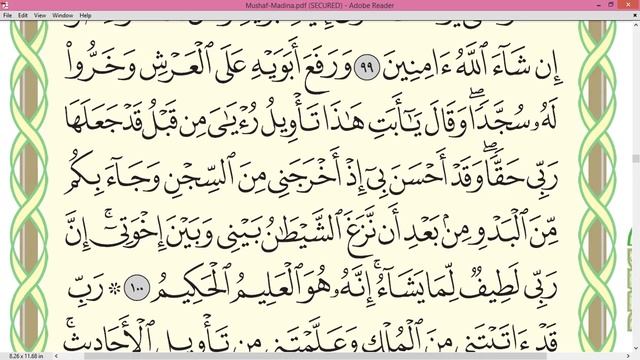 Mushaf-Madina.pdf (SECURED) - Adobe Reader
File Edit View Window Help
إِن شَآءَ ٱللَّهُ ءَامِنِينَ ٩٩ وَرَفَعَ أَبَوَيْهِ عَلَى ٱلْعَرْشِ وَخَرُّوا۟
لَهُۥ سُجَّدًا ۖ وَقَالَ يَـٰٓأَبَتِ هَـٰذَا تَأْوِيلُ رُءْيَـٰىَ مِن قَبْلُ قَدْ جَعَلَهَا
رَبِّى حَقًّا ۖ وَقَدْ أَحْسَنَ بِىٓ إِذْ أَخْرَجَنِى مِنَ ٱلسِّجْنِ وَجَآءَ بِكُم
مِّنَ ٱلْبَدْوِ مِنۢ بَعْدِ أَن نَّزَغَ ٱلشَّيْطَـٰنُ بَيْنِى وَبَيْنَ إِخْوَتِىٓ ۚ إِنَّ
رَبِّى لَطِيفٌ لِّمَا يَشَآءُ ۚ إِنَّهُۥ هُوَ ٱلْعَلِيمُ ٱلْحَكِيمُ ١٠٠ ۞ رَبِّ
قَدْ ءَاتَيْتَنِى مِنَ ٱلْمُلْكِ وَعَلَّمْتَنِى مِن تَأْوِيلِ ٱلْأَحَادِيثِ ۚ
8.26 x 11.68 in